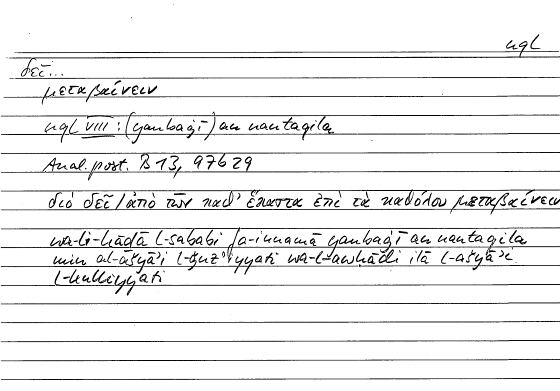 nql
δεῖ...
μεταβαίνειν
nql VIII : (yanbaġī) an nantaqila
Anal. post. B 13, 97b29
διό δεῖ / ἀπὸ τῶν καθ' ἕκαστα ἐπὶ τὰ καθόλου μεταβαίνειν
wa-li-hāḏā l-sababi fa-innamā yanbaġī an nantaqila
min al-ašyāʾi l-ǧuzʾiyyati wa-l-awḥādi ilā l-ašyāʾi
l-kulliyyati